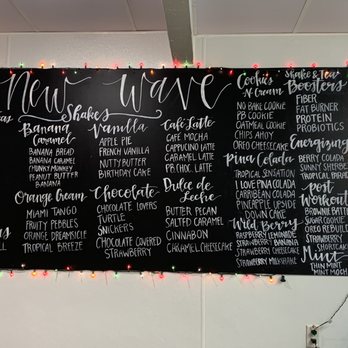 New Wave
Shakes
Banana
Caramel
Banana Bread
Banana Caramel
Chunky Monkey
Peanut Butter
Banana
Orange Cream
Miami Tango
Fruity Pebbles
Orange Dreamsicle
Tropical Breeze
Vanilla
Apple Pie
French Vanilla
Nutty Butter
Birthday Cake
Chocolate
Chocolate Lovers
Turtle
Snickers
Chocolate Covered
Strawberry
Café Latte
Cafe Mocha
Cappuccino
Caramel Latte
P.B. Choc. Latte
Dulce de
Leche
Butter Pecan
Salted Caramel
Cinnabon
Caramel Cheesecake
Cookies
N Cream
No Bake Cookie
PB Cookie
Oatmeal Cookie
Chips Ahoy
Oreo Cheesecake
Pina Colada
Tropical Sensation
I Love Pina Colada
Caribbean Cooler
Pineapple Upside
Down Cake
Wild Berry
Raspberry Lemonade
Strawberry Banana
Strawberry Cheesecake
Strawberry Milkshake
Shake & Tea
Boosters
Fiber
Fat Burner
Protein
Probiotics
Energizing
Berry
Sunny
Tropical
Post
Workout
Brownie
Sugar Cookie
Oreo
Strawberry
Shortcake
Mint
Thin Mint
Mint Moch